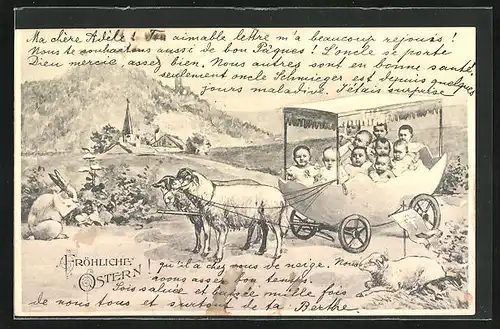 Ma chère Adèle! Ton aimable lettre m'a beaucoup rejouis!
Nous te souhaitons aussi de bon Pâques! L'oncle se porte
Dieu mercie, assez bien. Nous autres sont en bonne santé,
seulement oncle Schmieger est depuis quelques
jours maladive. J'étais surprise
FRÖHLICHE
OSTERN!
qu'il a chez vous de neige. Nous
avons assez bon temps.
Sois salüée et baisée mille fois
de nous tous et surtout de ta Berthe